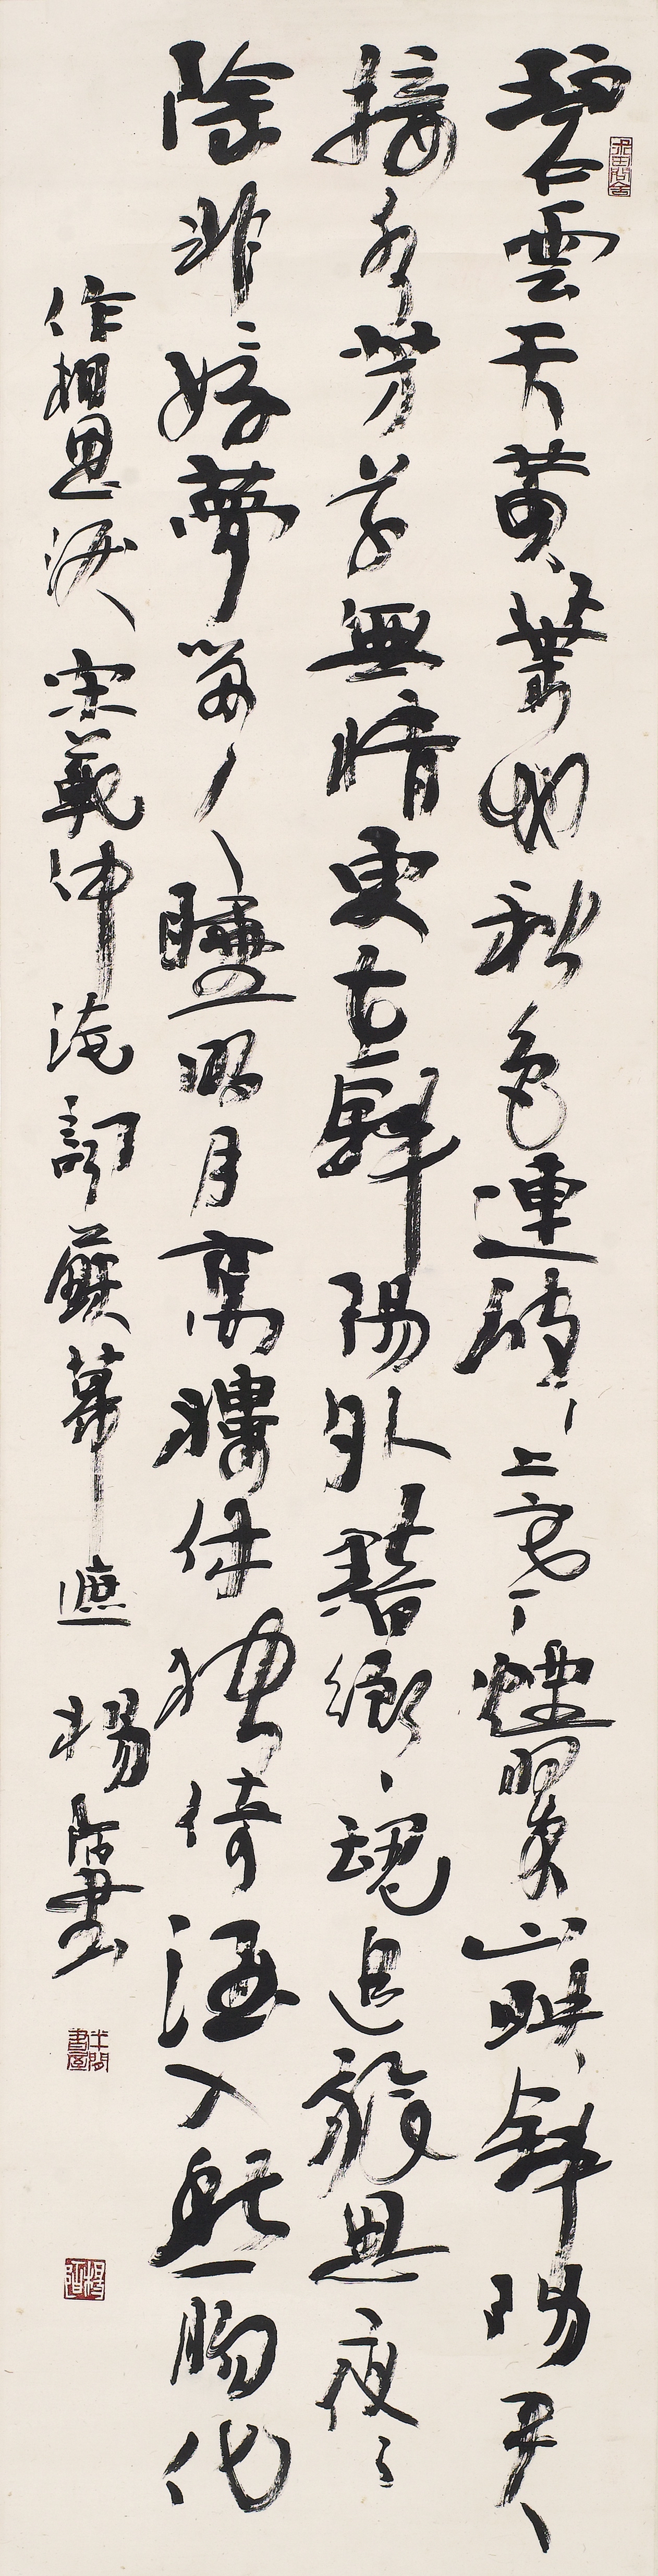 求田問舍
碧雲天黃葉地秋色連波〻上寒煙翠山映斜陽天
接水芳草無情更在斜陽外黯鄉魂追旅思夜〻
除非好夢留人睡明月高樓休獨倚酒入愁腸化
作相思淚 宋範仲淹詞蘇幕遮 楊書